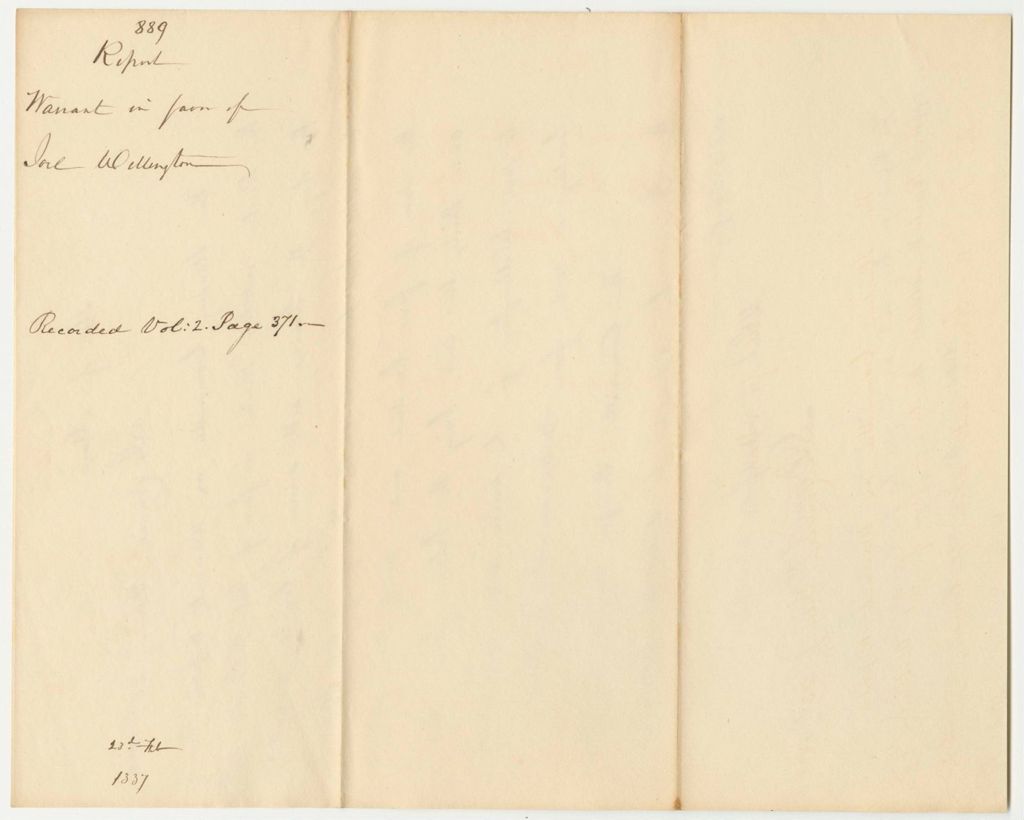 889
Report
Warrant in favor of
Joel Wellington
Recorded Vol: 2. Page 371
23d Feb
1837